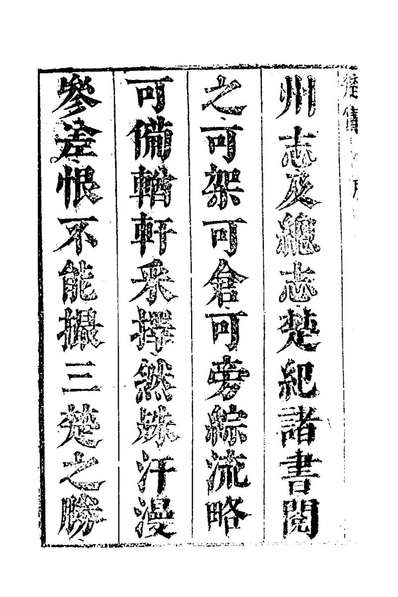 州志及總志楚紀諸書閱
之可架可倉可旁綜流略
可備輶軒采擇然殊汗漫
參差恨不能撮三楚之勝